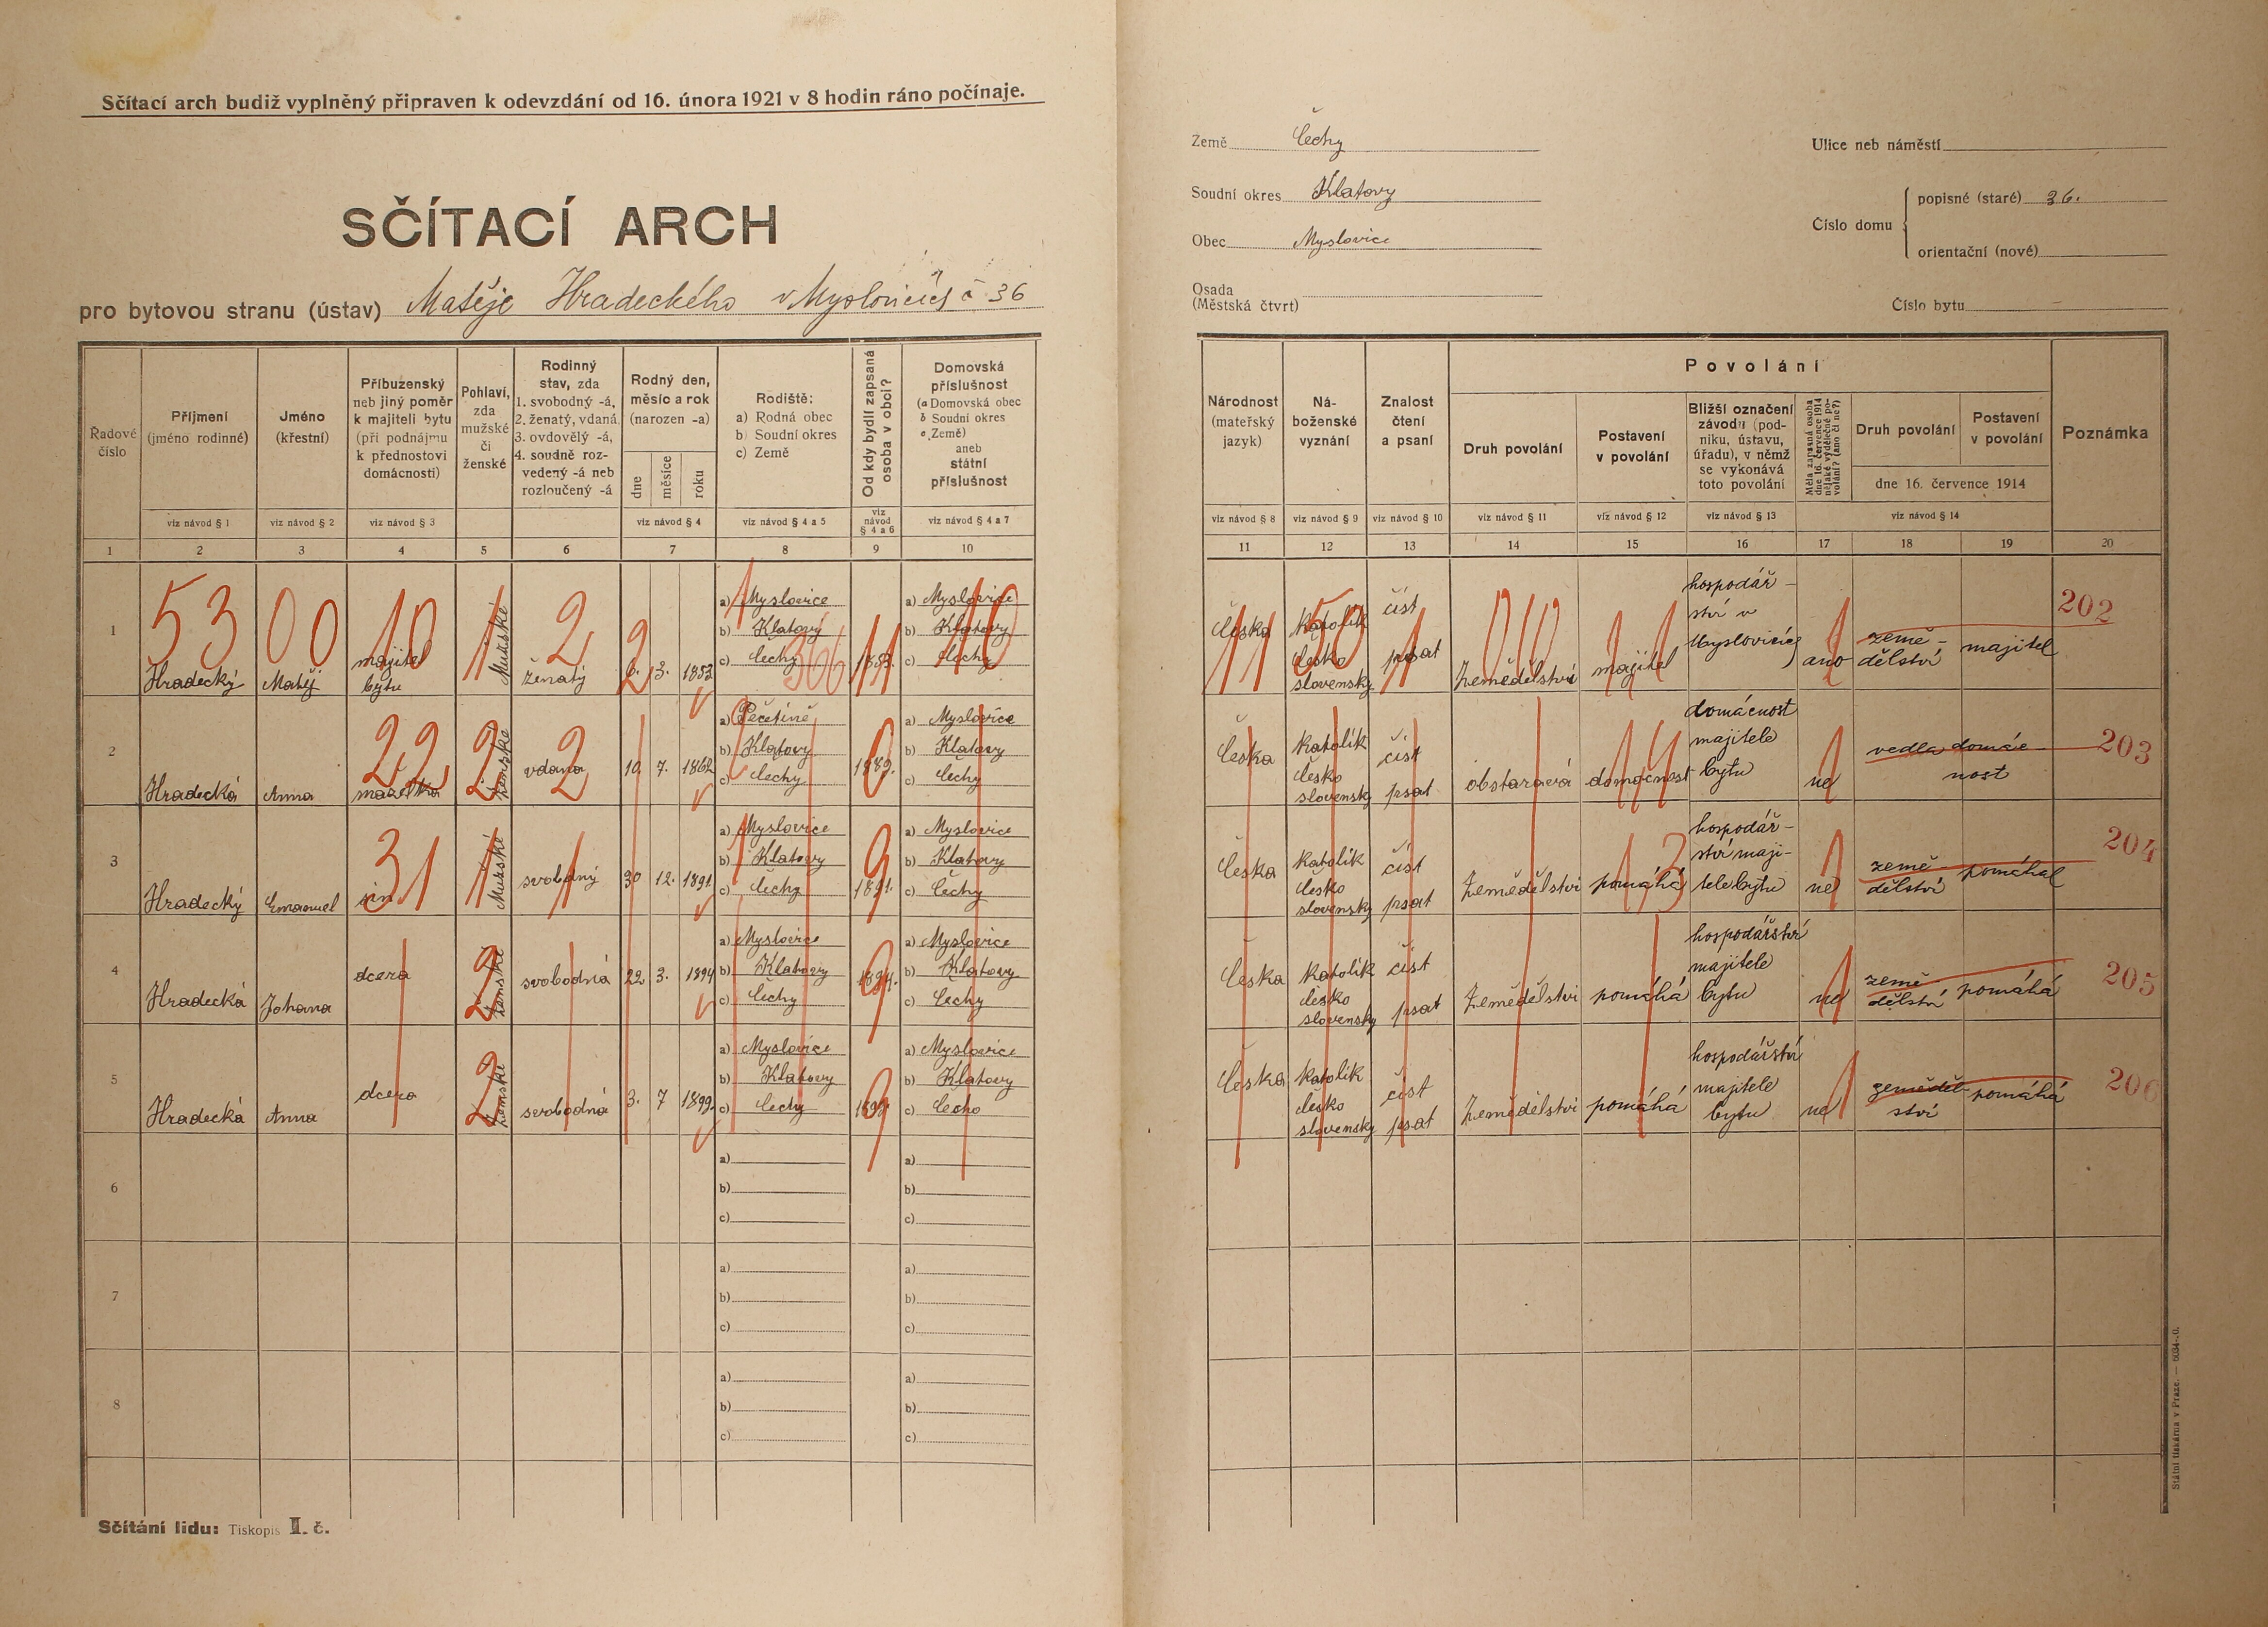 Sčítací arch budiž vyplněný připraven k odevzdání od 16. února 1921 v 8 hodin ráno počínaje.
SČÍTACÍ ARCH
pro bytovou stranu (ústav) Matěje Hradeckého v Myslovicích č 36
Země Čechy
Soudní okres Klatovy
Obec Myslovice
Osada
(Městská čtvrt)
Ulice neb náměstí
Číslo domu
popisné (staré) 36.
orientační (nové)
Číslo bytu
Řadové
číslo
Příjmení
(jméno rodinné)
viz návod § 1
Jméno
(křestní)
viz návod § 2
Příbuzenský
neb jiný poměr
k majiteli bytu
(při podnájmu
k přednostovi
domácnosti)
viz návod § 3
Pohlaví,
zda
mužské
či
ženské
Rodinný
stav, zda
1. svobodný -á,
2. ženatý, vdaná
3. ovdovělý -á,
4. soudně roz-
vedený -á neb
rozloučený -á
Rodný den,
měsíc a rok
(narozen -a)
dne
měsíce
roku
viz návod § 4
Rodiště:
a) Rodná obec
b) Soudní okres
c) Země
viz návod § 4 a 5
Od kdy bydlí zapsaná
osoba v obci?
viz
návod
§ 4 a 6
Domovská
příslušnost
(a Domovská obec
b Soudní okres
c Země)
aneb
státní
příslušnost
viz návod § 4 a 7
1 2 3 4 5 6 7 8 9 10
Národnost
(mateřský
jazyk)
viz návod § 8
Ná-
boženské
vyznání
viz návod § 9
Znalost
čtení
a psaní
viz návod § 10
Povolání
Druh povolání
viz návod § 11
Postavení
v povolání
viz návod § 12
Bližší označení
závodu (pod-
niku, ústavu,
úřadu), v němž
se vykonává
toto povolání
viz návod § 13
Měla zapsaná osoba
dne 16. července 1914
nějaké výdělečné po-
volání? (ano či ne?)
Druh povolání
Postavení
v povolání
dne 16. července 1914
viz návod § 14
Poznámka
11 12 13 14 15 16 17 18 19 20
1
53 00 10 1 2 2 1 366 11 110
Hradecký
Matěj
majitel
bytu
Mužské
ženatý
6. 3. 1853
a) Myslovice
b) Klatovy
c) Čechy
1853.
a) Myslovice
b) Klatovy
c) Čechy
11 50 1 010 11 1
česka
katolík
česko
slovensky
číst
psat
Zemědělství
majitel
hospodář-
ství v
Myslovicích
ano
země-
dělství
majitel
202
2
22 2 2
Hradecká
Anna
manželka
Ženské
vdana
10. 7. 1862
a) Pečetíně
b) Klatovy
c) Čechy
1889.
a) Myslovice
b) Klatovy
c) Čechy
česka
katolík
česko
slovensky
číst
psat
obstaravá
domacnost
domácnost
majitele
bytu
ne
vedla domác-
nost
203
3
31 1 1 1 9
Hradecký
Emanuel
sin
Mužské
svobdný
30 12. 1891.
a) Myslovice
b) Klatovy
c) Čechy
1891.
a) Myslovice
b) Klatovy
c) Čechy
česka
katolík
česko
slovensky
číst
psat
Zemědělství
pomáhá
13
hospodář-
ství maji-
tele bytu
ne
země
dělství
pomáhal
204
4
Hradecká
Johana
dcera
2
Ženské
svobodná
22 3. 1894
a) Myslovice
b) Klatovy
c) Čechy
1894.
9
a) Myslovice
b) Klatovy
c) Čechy
česka
katolík
česko
slovensky
číst
psat
Zemědělství
pomáhá
hospodářství
majitele
bytu
ne
země
dělství
pomáhá
205
5
Hradecká
Anna
dcera
2
Ženské
svobodná
3. 7 1899.
a) Myslovice
b) Klatovy
c) Čechy
1899
9
a) Myslovice
b) Klatovy
c) Čecho
česka
katolík
česko
slovensky
číst
psat
Zemědělství
pomáhá
hospodářství
majitele
bytu
ne
zeměděl-
ství
pomáhá
206
6
a) a)
b) b)
c) c)
7
a) a)
b) b)
c) c)
8
a) a)
b) b)
c) c)
Sčítání lidu: Tiskopis II. č.